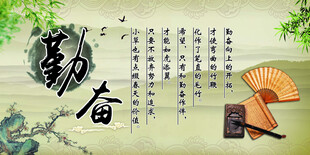 勤奋
勤奋向上的开拓，
才使弯曲的竹鞭，
化作了笔直的毛竹，
希望，只有和勤奋作伴，
才能如虎添翼
只要不放弃努力和追求，
小草也有点缀春天的价值